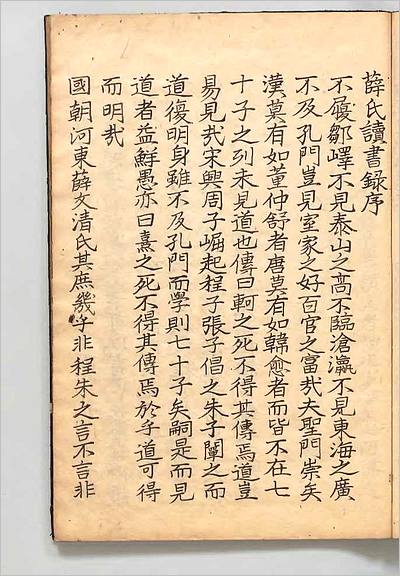 薛氏讀書録序
不履鄒嶧不見泰山之高不臨滄瀛不見東海之廣
不及孔門豈見室家之好百官之富哉夫聖門崇矣
漢莫有如董仲舒者唐莫有如韓愈者而皆不在七
十子之列未見道也傳曰軻之死不得其傳焉道豈
易見哉宋興周子崛起程子張子倡之朱子闡之而
道復明身雖不及孔門而學則七十子矣嗣是而見
道者益鮮愚亦曰熹之死不得其傳焉於乎道可得
而明哉
國朝河東薛文清氏其庶幾乎非程朱之言不言非